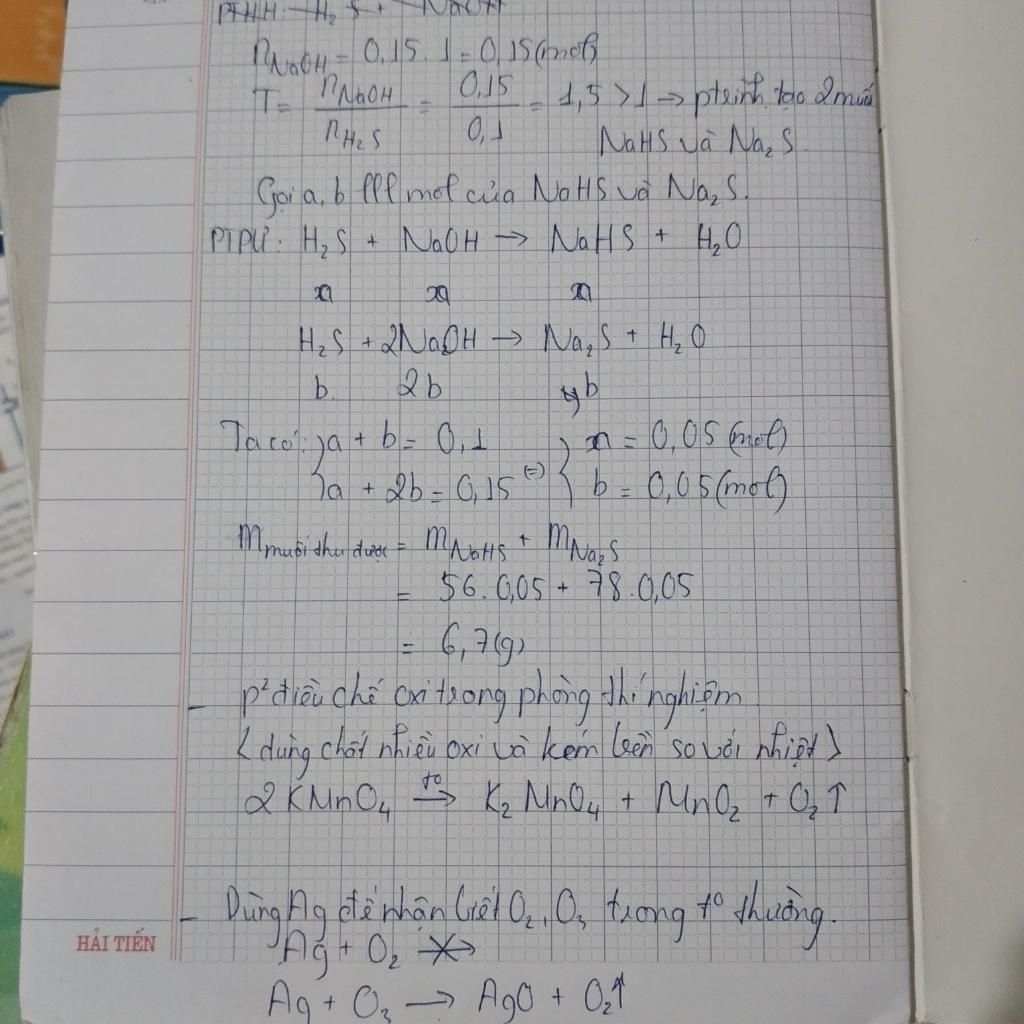 PTHH: H₂S + NaOH
n NaOH = 0,15 . 1 = 0,15 (mol)
T = n NaOH / n H₂S = 0,15 / 0,1 = 1,5 > 1 → ptrình tạo 2 muối
NaHS và Na₂S
Gọi a, b lll mol của NaHS và Na₂S.
PTPƯ: H₂S + NaOH → NaHS + H₂O
a a a
H₂S + 2NaOH → Na₂S + H₂O
b. 2b b
Ta có: { a + b = 0,1 { a = 0,05 (mol)
{ a + 2b = 0,15 (=) { b = 0,05 (mol)
m muối thu được = m NaHS + m Na₂S
= 56 . 0,05 + 78 . 0,05
= 6,7 (g)
- p² điều chế oxi trong phòng thí nghiệm
< dùng chất nhiều oxi và kém bền so với nhiệt >
2 KMnO₄ t° → K₂MnO₄ + MnO₂ + O₂ ↑
- Dùng Ag để nhận biết O₂, O₃ trong t° thường.
HẢI TIẾN
Ag + O₂ ↛
Ag + O₃ → AgO + O₂↑